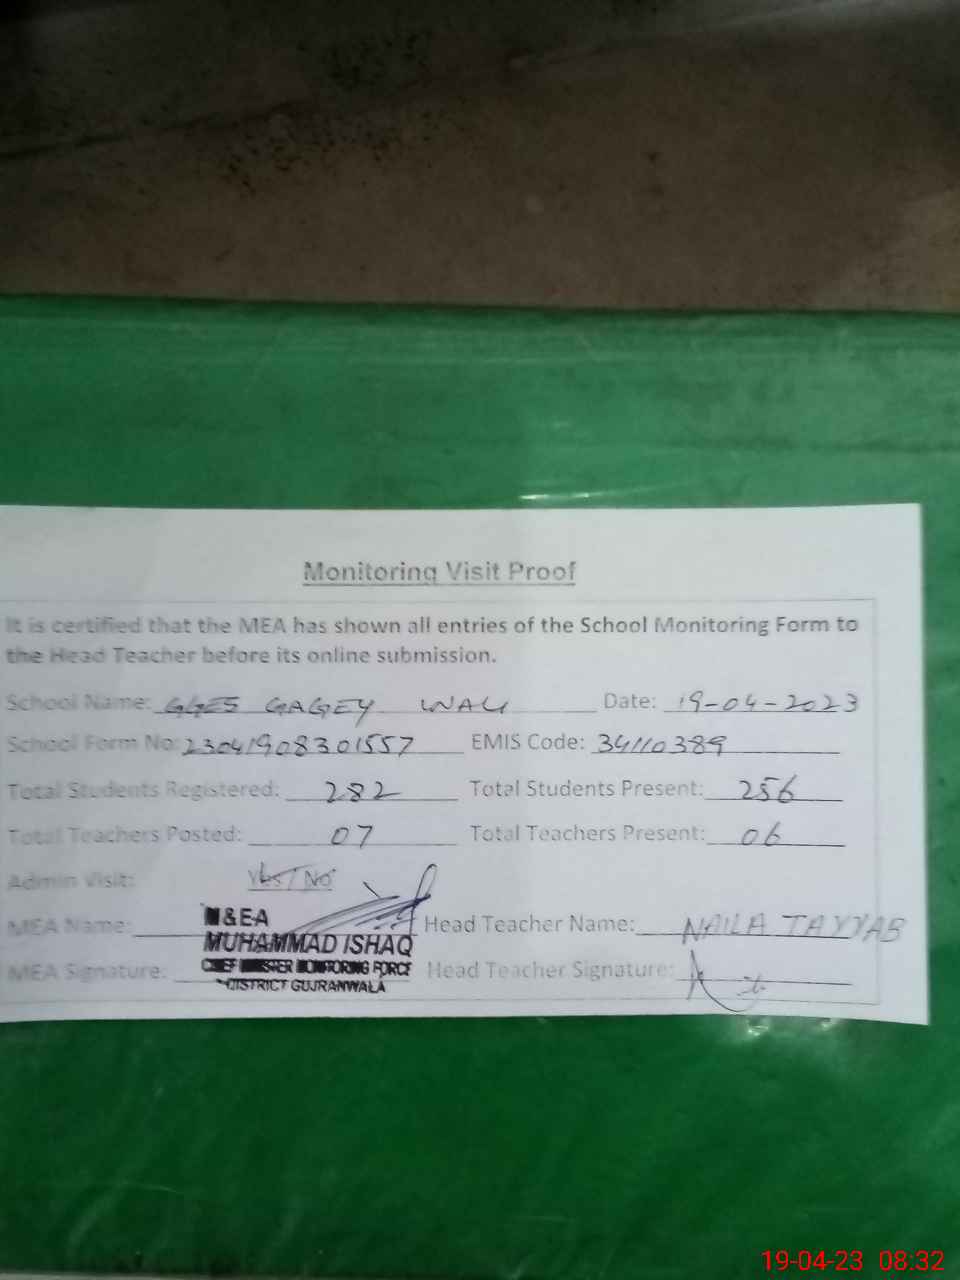 Monitoring Visit Proof
It is certified that the MEA has shown all entries of the School Monitoring Form to
the Head Teacher before its online submission.
School Name: GGES GAGEY WALI Date: 19-04-2023
School Form No: 23041908301557 EMIS Code: 34110389
Total Students Registered: 282 Total Students Present: 256
Total Teachers Posted: 07 Total Teachers Present: 06
Admin Visit: Yes / No
M&EA
MEA Name: MUHAMMAD ISHAQ Head Teacher Name: NAILA TAYYAB
CHIEF MINISTER MONITORING FORCE
MEA Signature: Head Teacher Signature:
DISTRICT GUJRANWALA
19-04-23 08:32